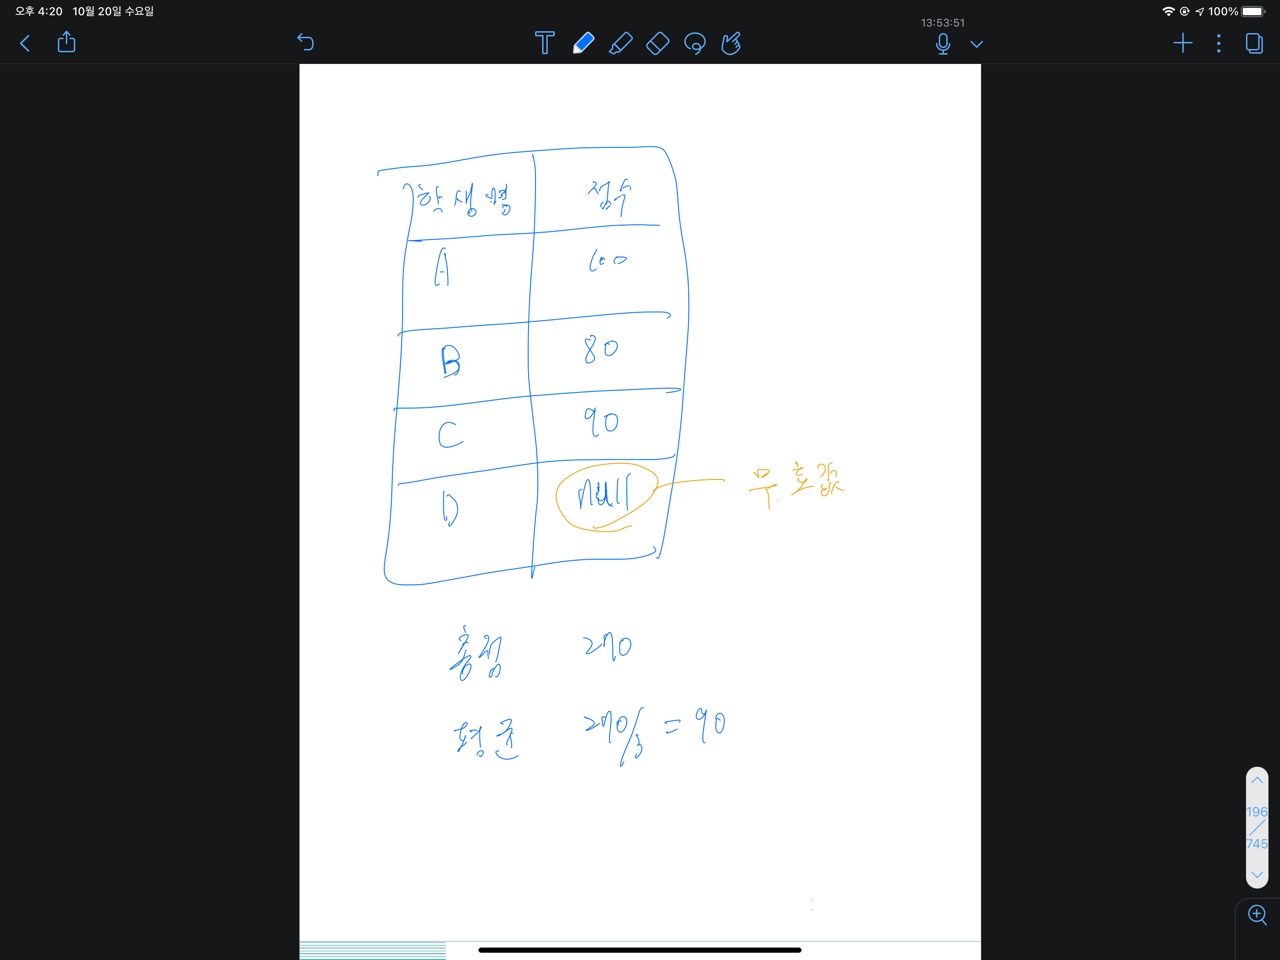 오후 4:20 10월 20일 수요일
100%
13:53:51
학생명 점수
A 100
B 80
C 90
D null
무효값
총점 270
평균 270/3 = 90
196
745